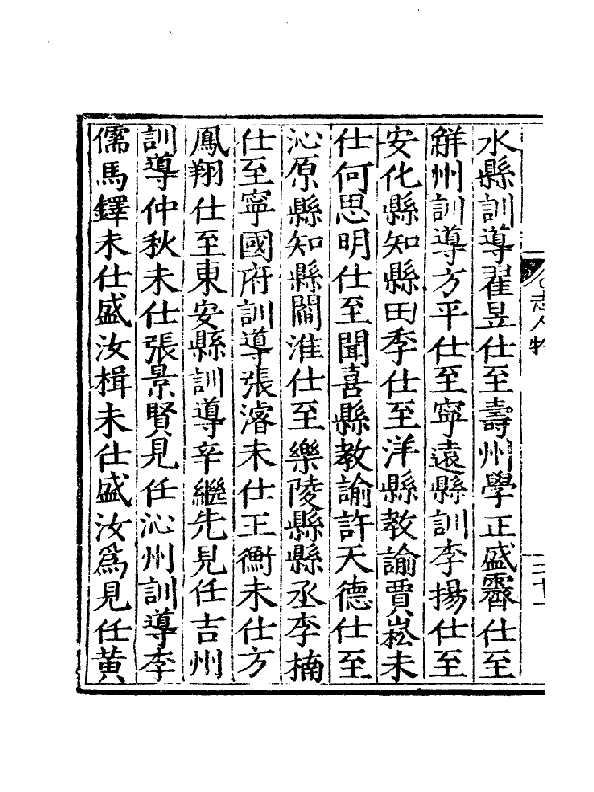 志人物
二十一
水縣訓導翟昱仕至壽州學正盛霽仕至
觧州訓導方平仕至寧遠縣訓李揚仕至
安化縣知縣田季仕至洋縣教諭賈崧未
仕何思明仕至聞喜縣教諭許天德仕至
沁原縣知縣閻淮仕至樂陵縣縣丞李楠
仕至寧國府訓導張濬未仕王衡未仕方
鳳翔仕至東安縣訓導辛繼先見任吉州
訓導仲秋未仕張景賢見任沁州訓導李
儒馬鐸未仕盛汝楫未仕盛汝爲見任黄